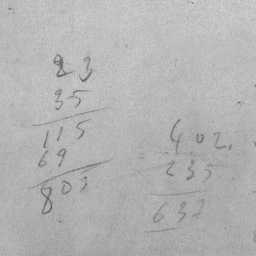 23
35
115
69
805
402.
235
637